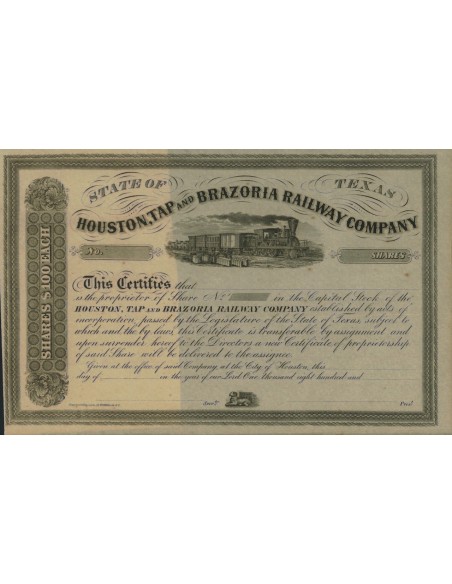 STATE OF TEXAS
HOUSTON, TAP AND BRAZORIA RAILWAY COMPANY
No. SHARES
SHARES $100 EACH
This Certifies that
is the proprietor of Share No. in the Capital Stock of the
HOUSTON, TAP AND BRAZORIA RAILWAY COMPANY established by acts of
incorporation, passed by the Legislature of the State of Texas, subject to
which and the by laws, this Certificate is transferable by assignment and
upon surrender hereof to the Directors a new Certificate of proprietorship
of said Share will be delivered to the assignee.
Given at the office of said Company, at the City of Houston, this
day of in the year of our Lord One thousand eight hundred and
Pres.